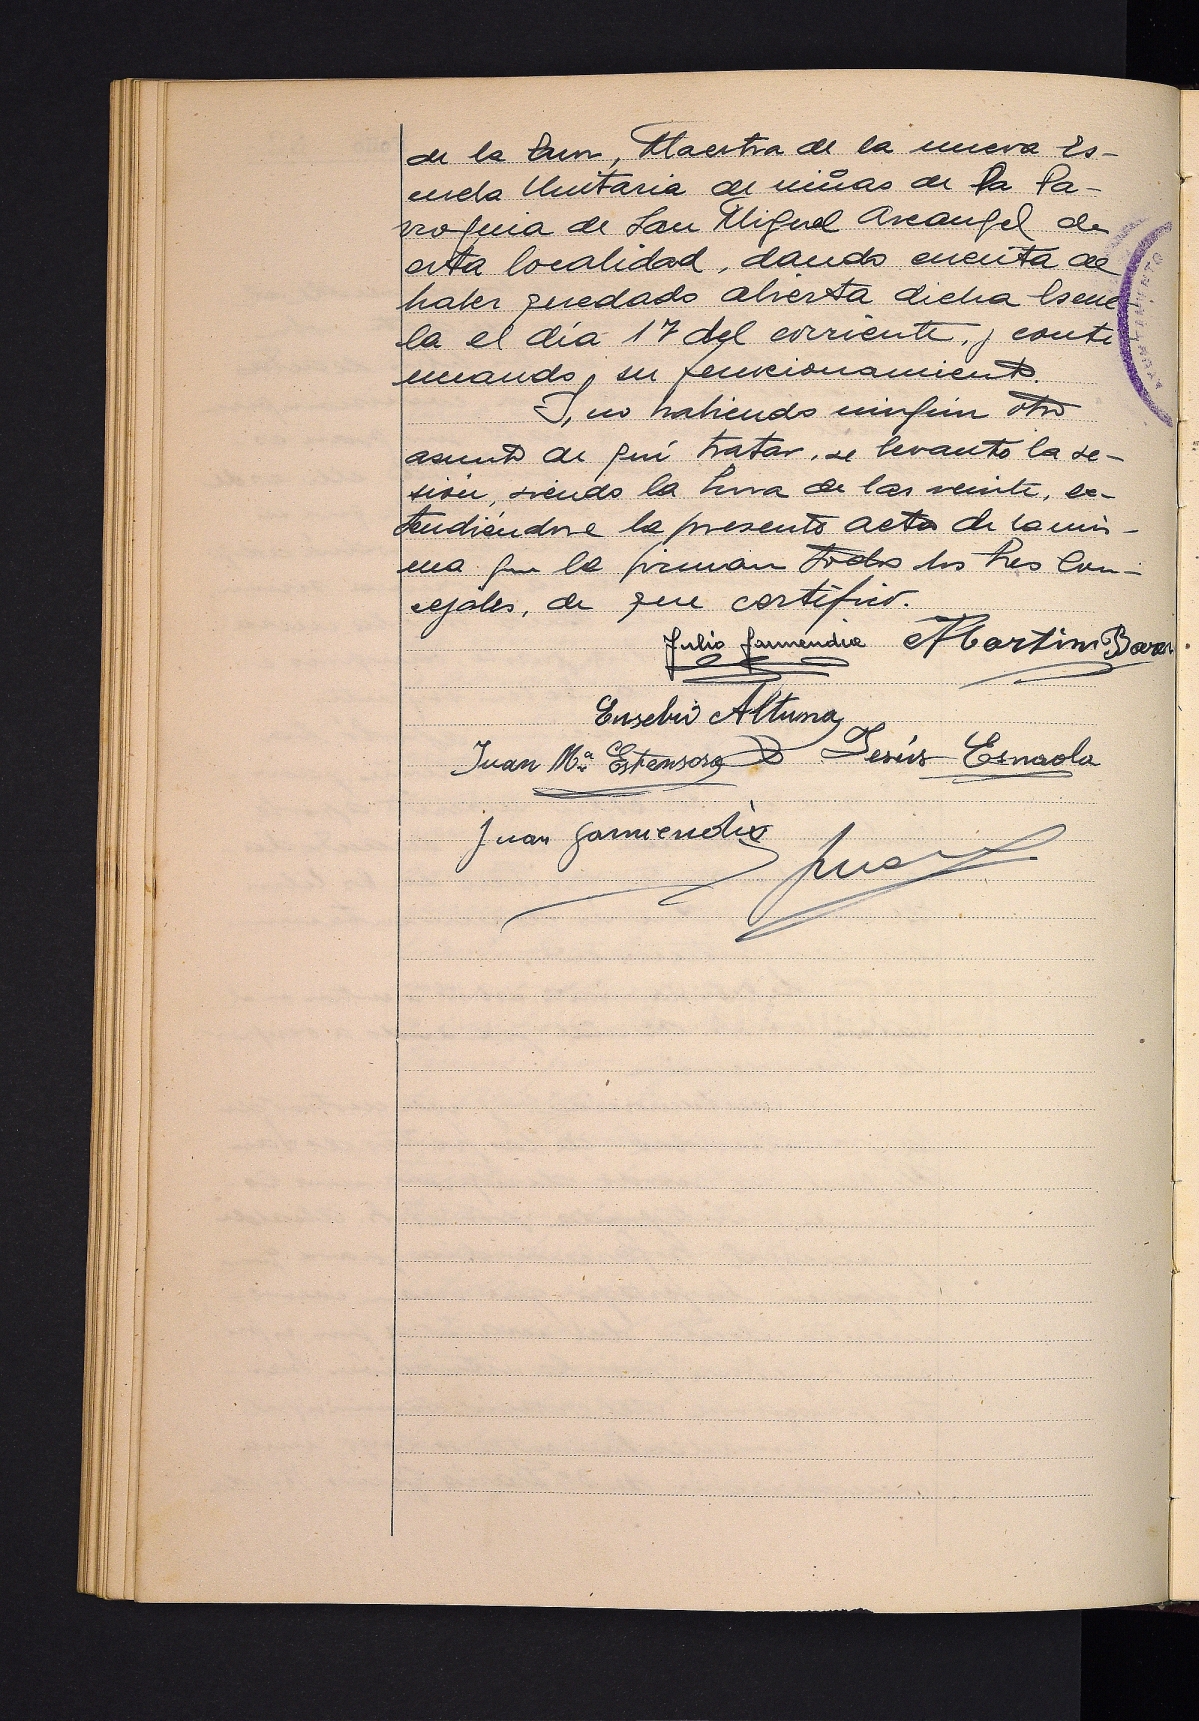 de la Paz, Maestra de la nueva Es-
cuela Unitaria de niñas de la Pa-
rroquia de San Miguel Arcangel de
esta localidad, dando cuenta de
haber quedado abierta dicha Escue
la el día 17 del corriente, y conti
nuando su funcionamiento.
Y, no habiendo ningún otro
asunto de qué tratar, se levantó la se-
sión, siendo la hora de las veinte, ex-
tendiéndose la presente acta de la mis-
ma que la firman todos los Sres Con-
cejales, de que certifico.
Julio Garmendia Martin Baran
Eusebio Altuna
Juan Mª Estensoro Jesús Esnaola
Juan Garmendia
AYUNTAMIENTO